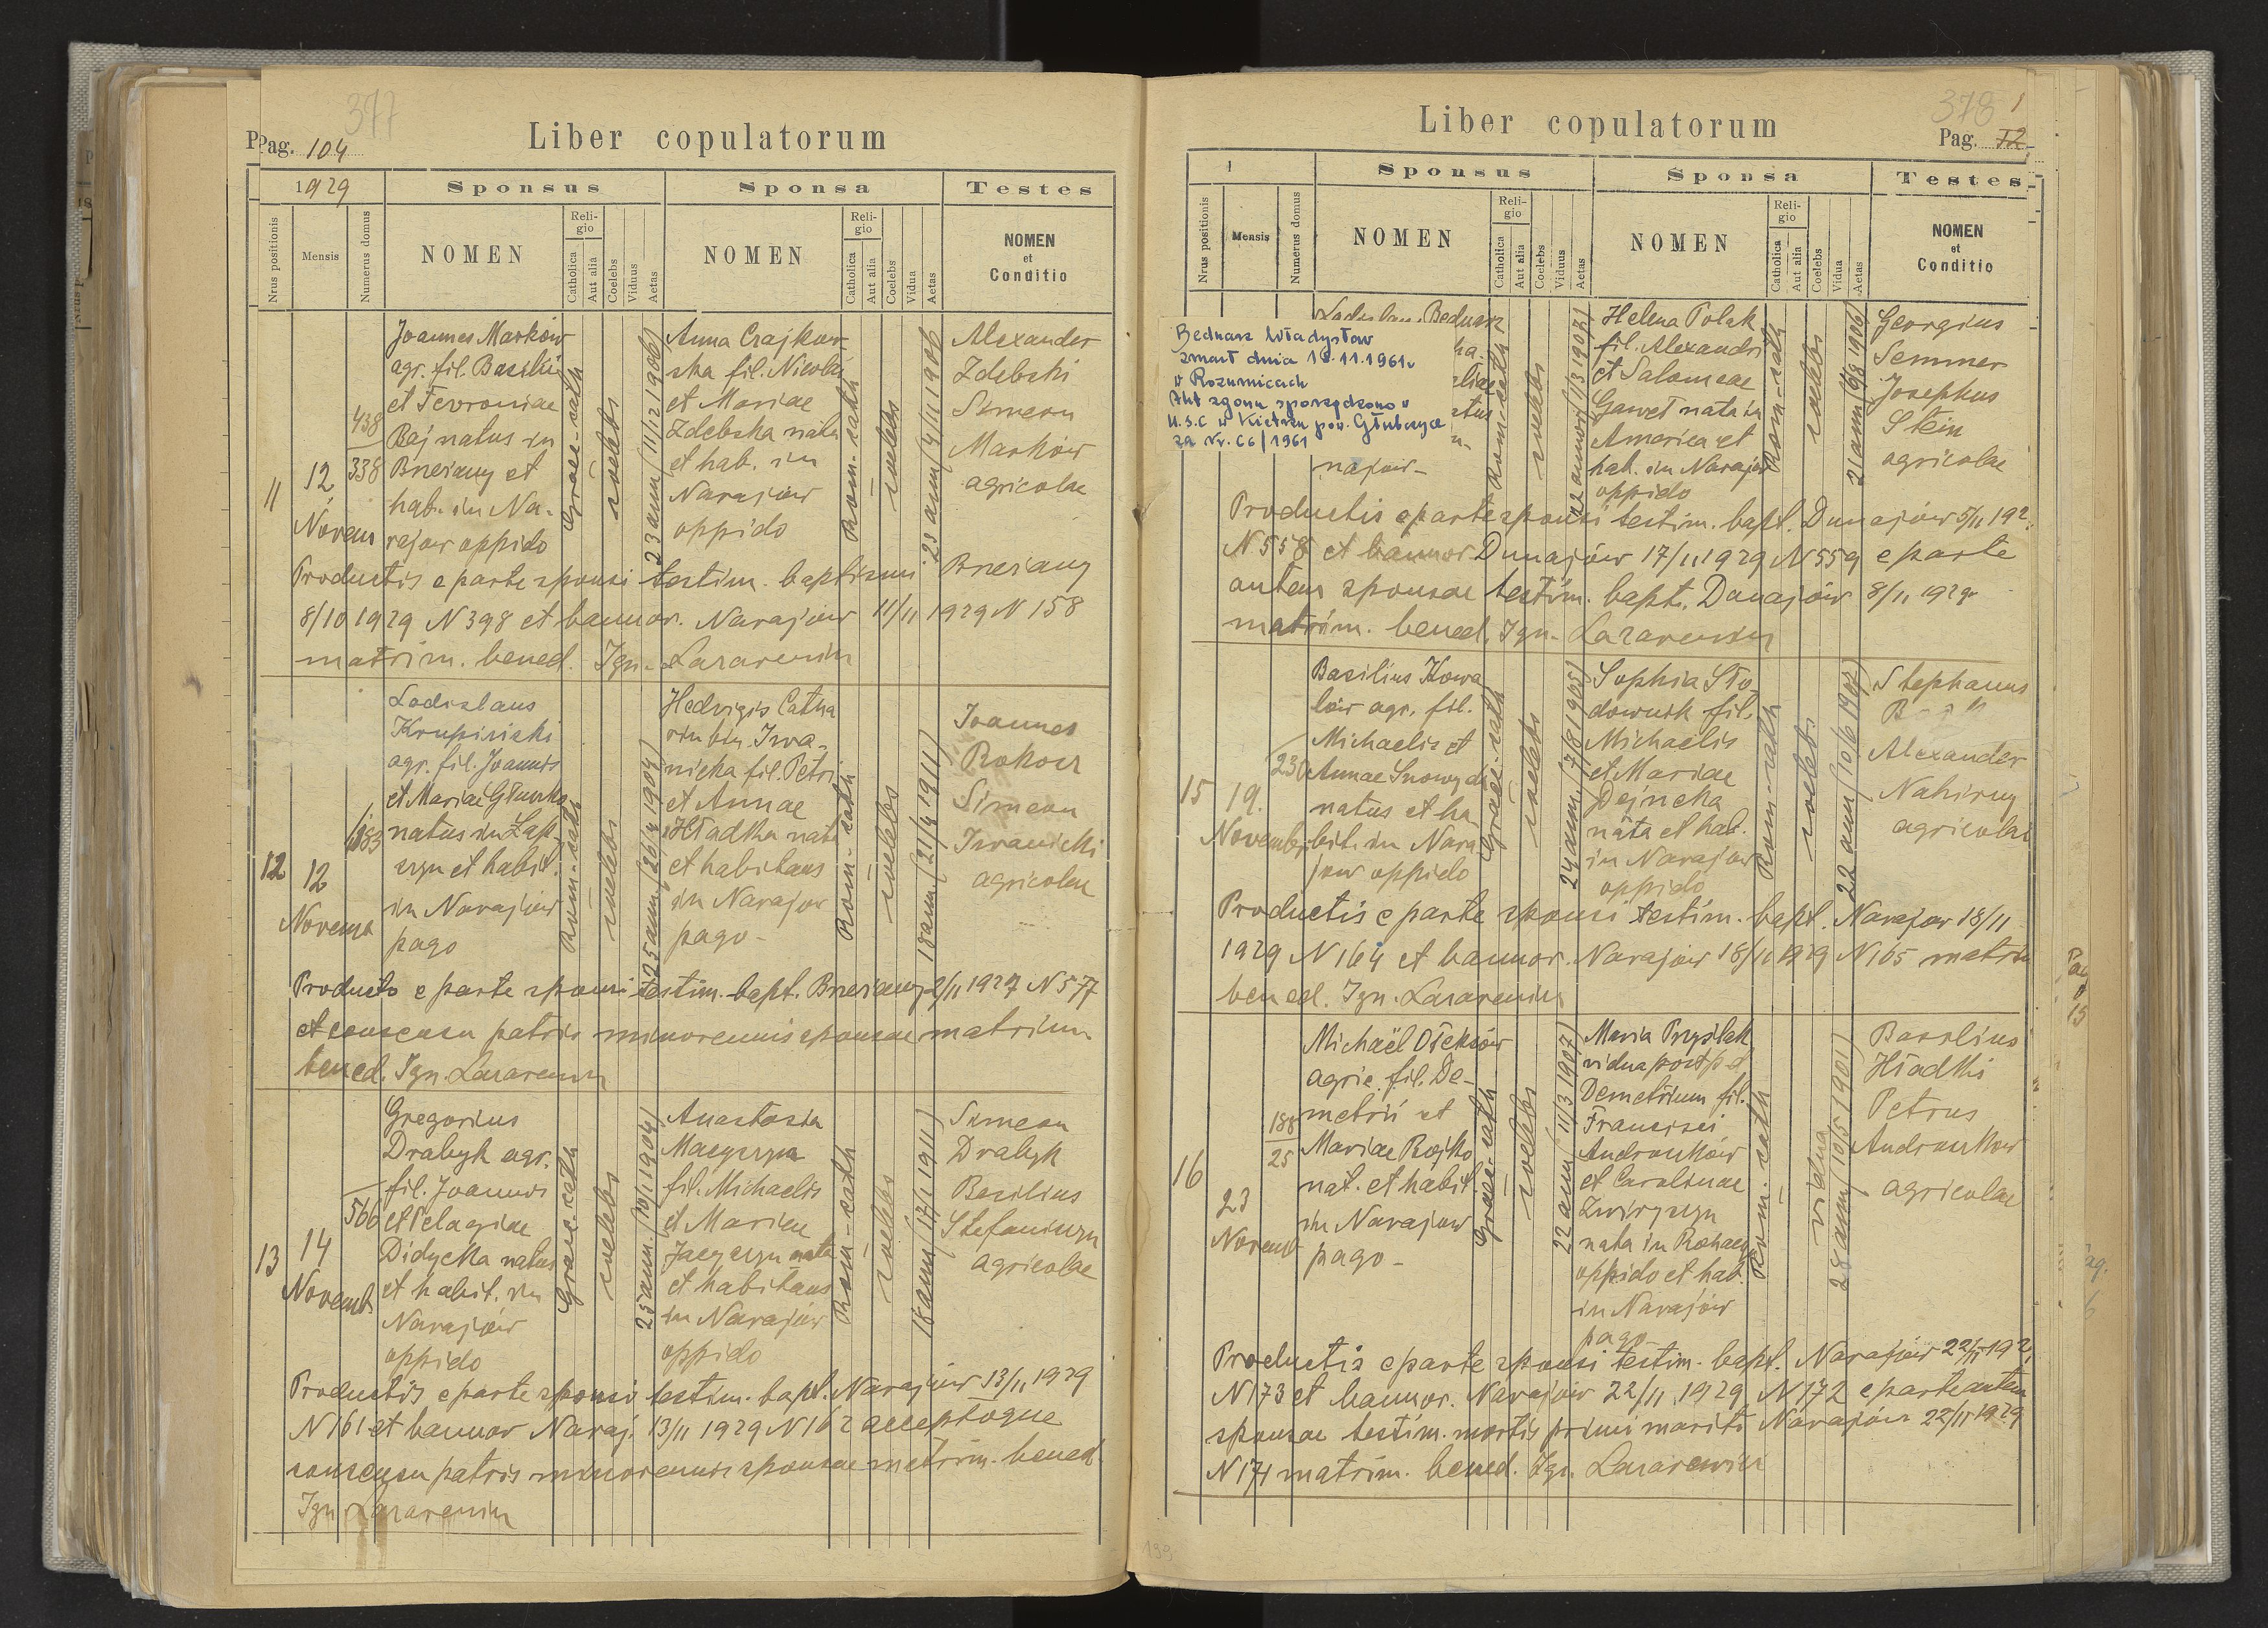 377
Liber copulatorum
Pag. 104
1929
Sponsus
Sponsa
Testes
Nrus positionis
Mensis
Numerus domus
NOMEN
Religio
Catholica
Aut alia
Coelebs
Viduus
Aetas
NOMEN
Religio
Catholica
Aut alia
Coelebs
Vidua
Aetas
NOMEN
et
Conditio
11
12
Novem
438
338
Joannes Markow
agr. fil. Basilii
et Fevroniae
Baj natus in
Brzeżany et
hab. in Na-
rajow oppido
Graec-cath
coelebs
23 ann (11/12 1906)
Anna Czajkow
ska fil. Nicolai
et Mariae
Zdebska nata
et hab. in
Narajow
oppido
Rom-cath
coelebs
23 ann (4/11 1906
Alexander
Zdebski
Simeon
Markow
agricolae
Productis e parte sponsi testim. baptismi Brzeżany
8/10 1929 N 398 et bannor. Narajow 11/11 1929 N 158
matrim. bened. Ign. Lazarewicz
12
12
Novemb
183
Ladislaus
Krupinicki
agr. fil. Joannis
et Mariae
natus in
et habit.
in Narajow
pago
Rom-cath
coelebs
25 ann (26/4 1904)
Hedvigis Catha
rin bin. Iwa-
nicka fil. Petri
et Annae
Hładka nata
et habitans
in Narajow
pago-
Rom-cath
coelebs
18 ann (21/4 1911)
Joannes
Rokosz
Simeon
Iwanicki
agricolae
Producto e parte sponsi testim. bapt. Brzeżany 2/11 1929 N 577
et consensu patris minorennis sponsae matrim
bened. Ign. Lazarewicz
13
14
Novemb.
566
Gregorius
Drabyk agr.
fil. Joannis
et Pelagiae
Didycka natus
et habit. in
Narajów
oppido
Graec-cath
coelebs
25 ann. (10/1 1904)
Anastasia
fil. Michaelis
et Mariae
nata
et habitans
in Narajow
oppido
Rom-cath
coelebs
18 ann (17/1 1911)
Simeon
Drabyk
Basilius
Stefaniszyn
agricolae
Productis e parte sponsi testim. bapt. Narajów 13/11 1929
N 161 et bannor Naraj. 13/11 1929 N 162 acceptoque
consensu patris minorennis sponsae matrim. bened.
Ign. Lazarewicz
378
1
Liber copulatorum
Pag. 72
1
Sponsus
Sponsa
Testes
Nrus positionis
Mensis
Numerus domus
NOMEN
Religio
Catholica
Aut alia
Coelebs
Viduus
Aetas
NOMEN
Religio
Catholica
Aut alia
Coelebs
Vidua
Aetas
NOMEN
et
Conditio
Bednarz Władysław
zmarł dnia 18.11.1961r
w Rozumicach
Akt zgonu sporządzono w
U.S.C w Kietrzu pow. Głubczyce
za Nr. 66/1961
Ladislaus Bednarz
najow-
Rom-cath
coelebs
22 annor (1/3 1907)
Helena Polak
fil. Alexandri
et Salomeae
Gaweł nata in
America et
hab. in Narajow
oppido
Rom-cath
coelebs
Georgius
Semmer
Josephus
Stein
agricolae
Productis e parte sponsi testim. bapt. Dunajów 5/11 192
N 558 et bannor Dunajów 17/11 1929 N 559 e parte
autem sponsae testim. bapt. Dunajów 8/11 1929
matrim. bened. Ign. Lazarewicz
15
19.
Novembr
230
Basilius Kowa
lów agr. fil.
Michaelis et
Annae
natus et ha
bit. in Nara
jow oppido
Graec-cath
coelebs
24 ann (7/8 1905)
Sophia Sło
downik fil.
Michaelis
et Mariae
Dejneka
nata et hab.
in Narajow
oppido
Rom-cath
coelebs
22 ann (10/6 1907)
Stephanus
Alexander
Nahirny
agricolae
Productis e parte sponsi testim. bapt. Narajow 18/11
1929 N 164 et bannor. Narajow 18/11 1929 N 165 matrim
bened. Ign. Lazarewicz
16
23
Novemb
188
25
Michaël Ołeksów
agric. fil. De-
metrii et
Mariae Rojko
nat. et habit.
in Narajow
pago-
Graec-cath
coelebs
22 ann (11/3 1907)
Maria Prysłak
vidua post p.d
Demetrium fil.
Francisci
Andrusków
et Carolinae
nata in Rohacz
oppido et hab.
in Narajów
pago-
Rom-cath
vidua
28 ann (10/5 1901)
Basilius
Hładki
Petrus
Andruskow
agricolae
Productis e parte sponsi testim. bapt. Narajów 22/11 192
N 173 et bannor. Narajów 22/11 1929 N 172 e parte autem
sponsae testim. mortis primi mariti Narajów 22/11 1929
N 171 matrim. bened. Ign. Lazarewicz